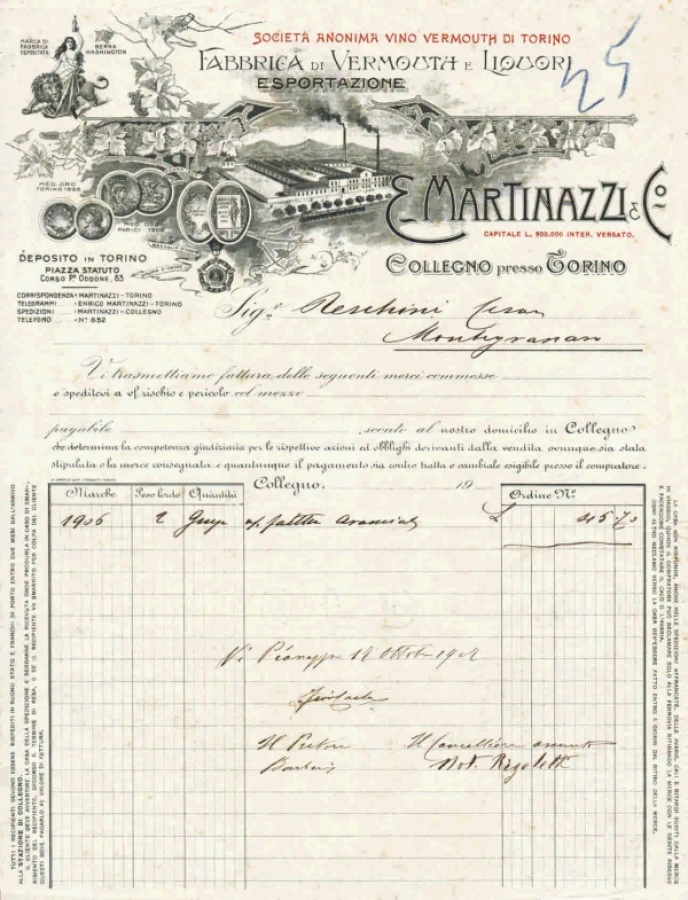 MARCA DI FABBRICA DEPOSITATA
BERNA WASHINGTON
SOCIETÀ ANONIMA VINO VERMOUTH DI TORINO
FABBRICA DI VERMOUTH E LIQUORI
ESPORTAZIONE
25
MED. ORO
TORINO 1898
MED. ORO
PARIGI 1900
E. MARTINAZZI & Co
CAPITALE L. 900.000 INTER. VERSATO.
COLLEGNO presso TORINO
DEPOSITO IN TORINO
PIAZZA STATUTO
CORSO Pe ODDONE, 63
CORRISPONDENZA - MARTINAZZI - TORINO
TELEGRAMMI - ENRICO MARTINAZZI - TORINO
SPEDIZIONI - MARTINAZZI - COLLEGNO
TELEFONO - No 652
Sigr Reschini
Vi trasmettiamo fattura delle seguenti merci commesse
e speditevi a vf rischio e pericolo col mezzo
pagabile sconto al nostro domicilio in Collegno
che determina la competenza giudiziaria per le rispettive azioni ed obblighi derivanti dalla vendita ovunque sia stata
stipulata o la merce consegnata e quantunque il pagamento sia contro tratta o cambiale esigibile presso il compratore.
Collegno, 19
Marche Peso lordo Quantità Ordine No
1906 2 £ 45 70
Ottobre
Il Pretore Il Cancelliere assunto
Not. Rigoletti
TUTTI I RECIPIENTI DEVONO ESSERE RISPEDITI IN BUONO STATO E FRANCHI DI PORTO ENTRO DUE MESI DALL'ARRIVO
ALLA STAZIONE DI COLLEGNO.
IL CLIENTE DEVE AVVERTIRE LA CASA DELLA SPEDIZIONE E SERBARNE LA RICEVUTA ONDE PRODURLA IN CASO DI SMAR-
RIMENTO DEL RECIPIENTE, DECORSO IL TERMINE DI RESA, O SE IL RECIPIENTE VA SMARRITO PER COLPA DEL CLIENTE
QUESTI DEVE PAGARLO AL VALORE DI FATTURA.
LA CASA NON RISPONDE, ANCHE NELLE SPEDIZIONI AFFRANCATE, DELLE AVARIE, CALI E RITARDI SUBITI DALLA MERCE
IN VIAGGIO, QUINDI IL COMPRATORE PUÒ RECLAMARE SOLO ALLA FERROVIA RITIRANDO LA MERCE CON LE DEBITE RISERVE
E FACENDONE CONSTATARE IL CALO O L'AVARIA.
OGNI ALTRO RECLAMO VERSO LA CASA DEV'ESSERE FATTO ENTRO 5 GIORNI DAL RITIRO DELLA MERCE.